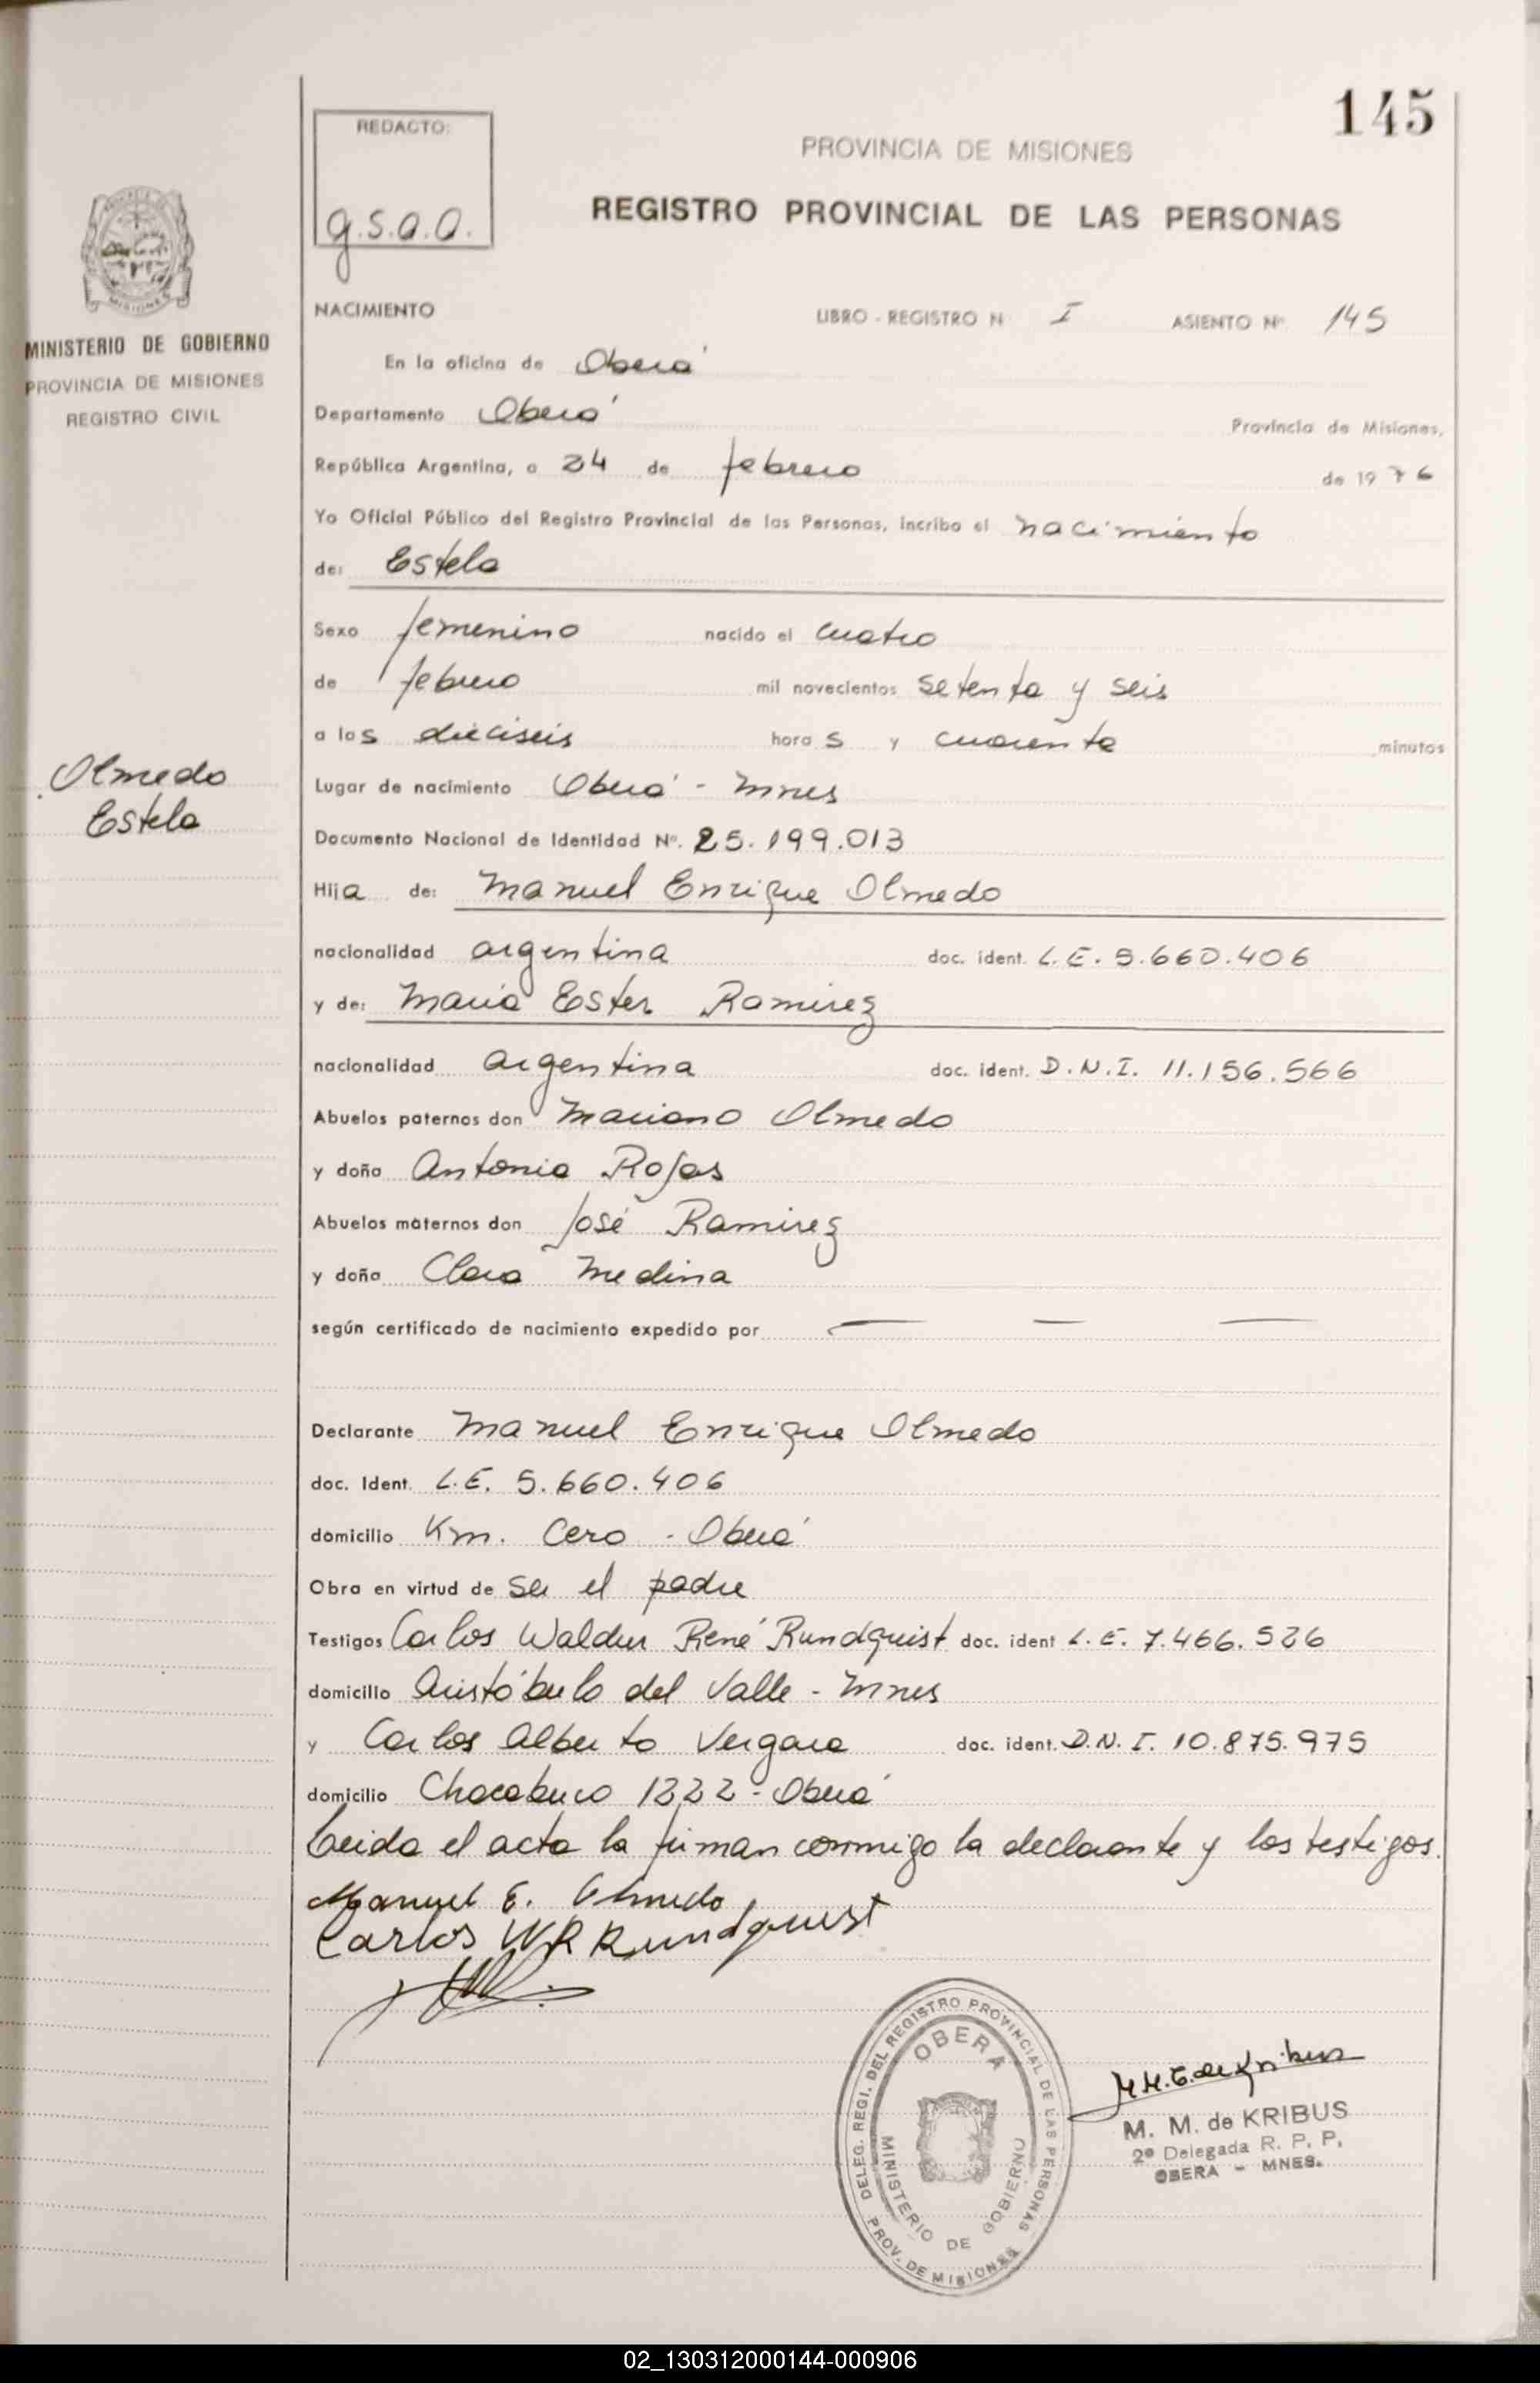 145
REDACTO:
g.s.a.o.
PROVINCIA DE MISIONES
REGISTRO PROVINCIAL DE LAS PERSONAS
MISIONES
MINISTERIO DE GOBIERNO
PROVINCIA DE MISIONES
REGISTRO CIVIL
Olmedo
Estela
NACIMIENTO LIBRO - REGISTRO N I ASIENTO Nº 145
En la oficina de Oberá
Departamento Oberá Provincia de Misiones,
República Argentina, a 24 de febrero de 1976
Yo Oficial Público del Registro Provincial de las Personas, incribo el nacimiento
de: Estela
Sexo femenino nacido el cuatro
de febrero mil novecientos setenta y seis
a las dieciseis horas y cuarenta minutos
Lugar de nacimiento Oberá - Mnes
Documento Nacional de Identidad Nº. 25.199.013
Hija de: Manuel Enrique Olmedo
nacionalidad argentina doc. ident. L.E. 5.660.406
y de: Maria Ester Ramirez
nacionalidad argentina doc. ident. D.N.I. 11.156.566
Abuelos paternos don Mariano Olmedo
y doña Antonia Rojas
Abuelos maternos don José Ramirez
y doña Clara Medina
según certificado de nacimiento expedido por — — —
Declarante Manuel Enrique Olmedo
doc. Ident. L.E. 5.660.406
domicilio Km. Cero - Oberá
Obra en virtud de ser el padre
Testigos Carlos Walder René Rundquist doc. ident L.E. 7.466.526
domicilio Aristóbulo del Valle - Mnes
y Carlos Alberto Vergara doc. ident. D.N.I. 10.875.975
domicilio Chacabuco 1222 - Oberá
Leida el acta la firman conmigo la declarante y los testigos.
Manuel E. Olmedo
Carlos W R Rundquist
DELEG. REGI. DEL REGISTRO PROVINCIAL DE LAS PERSONAS
OBERA
MINISTERIO DE GOBIERNO
PROV. DE MISIONES
M.M.E. de Kribus
M. M. de KRIBUS
2º Delegada R. P. P.
OBERA - MNES.
02_130312000144-000906